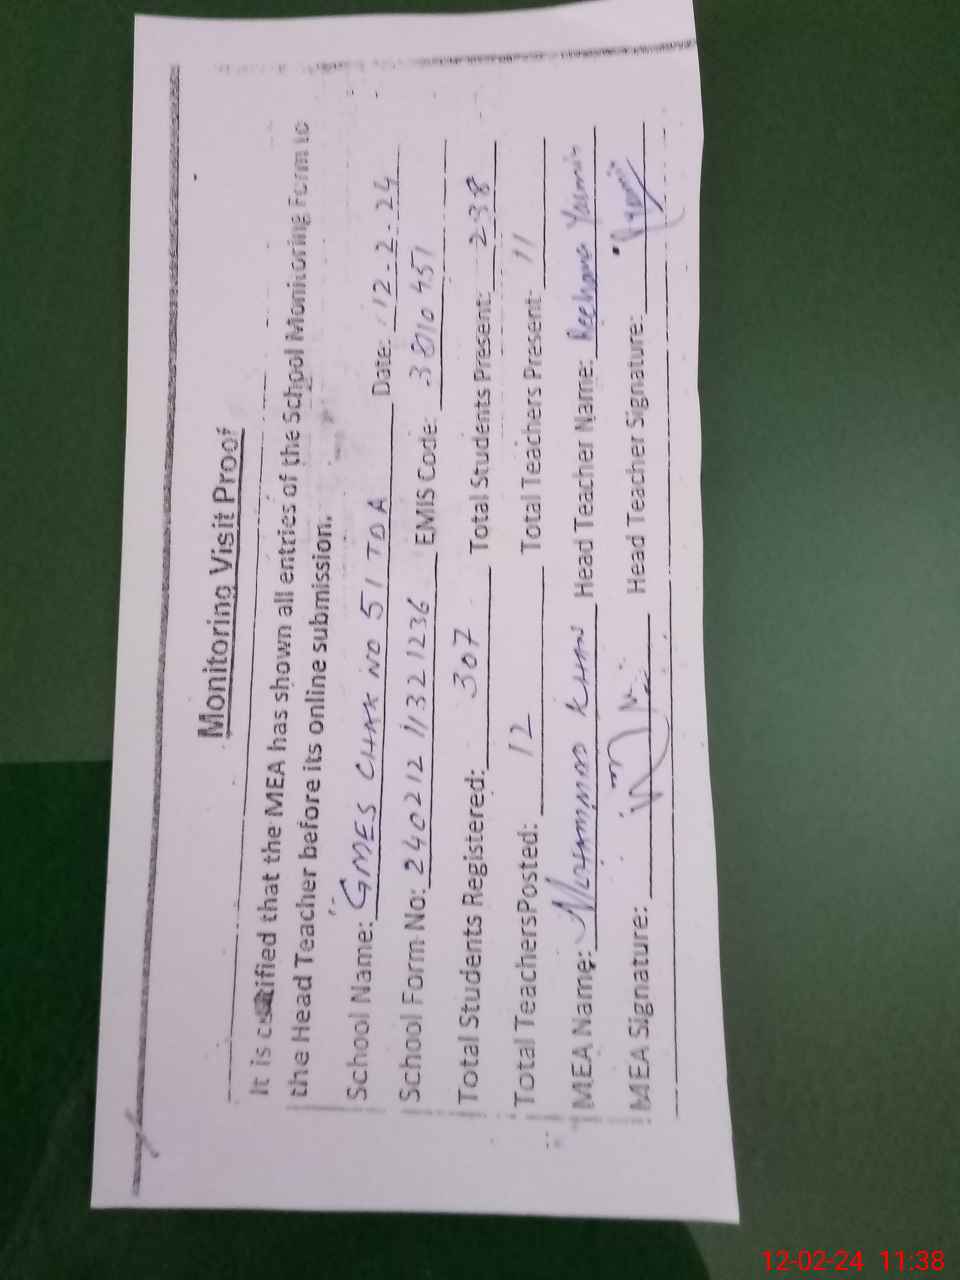 Monitoring Visit Proof
It is certified that the MEA has shown all entries of the School Monitoring Form to
the Head Teacher before its online submission.
School Name: GMES CHAK NO 51 TDA Date: 12.2.24
School Form No: 240212 11321236 EMIS Code:
Total Students Registered: 307 Total Students Present: 298
Total TeachersPosted: 12 Total Teachers Present: 11
MEA Name: Muhammad KHAN Head Teacher Name: Reehana Yasmin
MEA Signature: Head Teacher Signature:
12-02-24 11:38